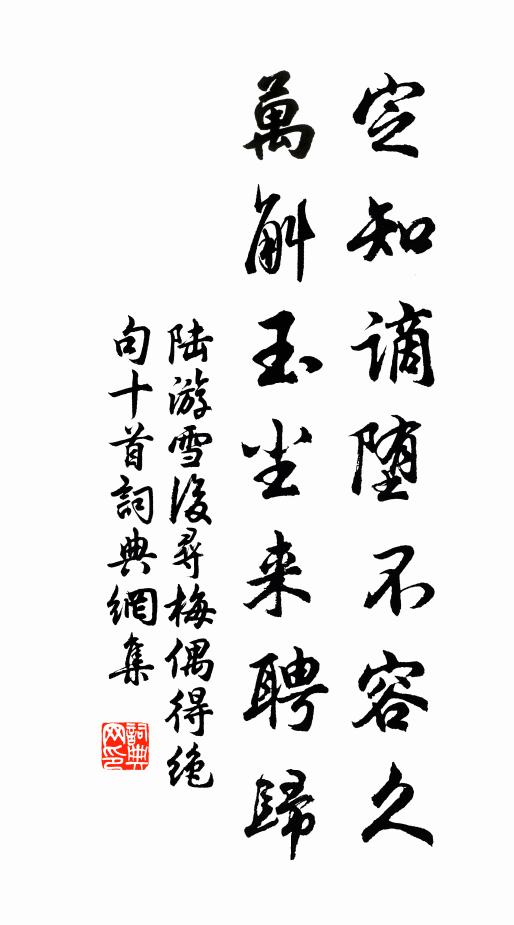 定知謫堕不容久
萬斛玉尘来聘歸
陆游雪後尋梅偶得绝
句十首詞典網集
詞典
网印